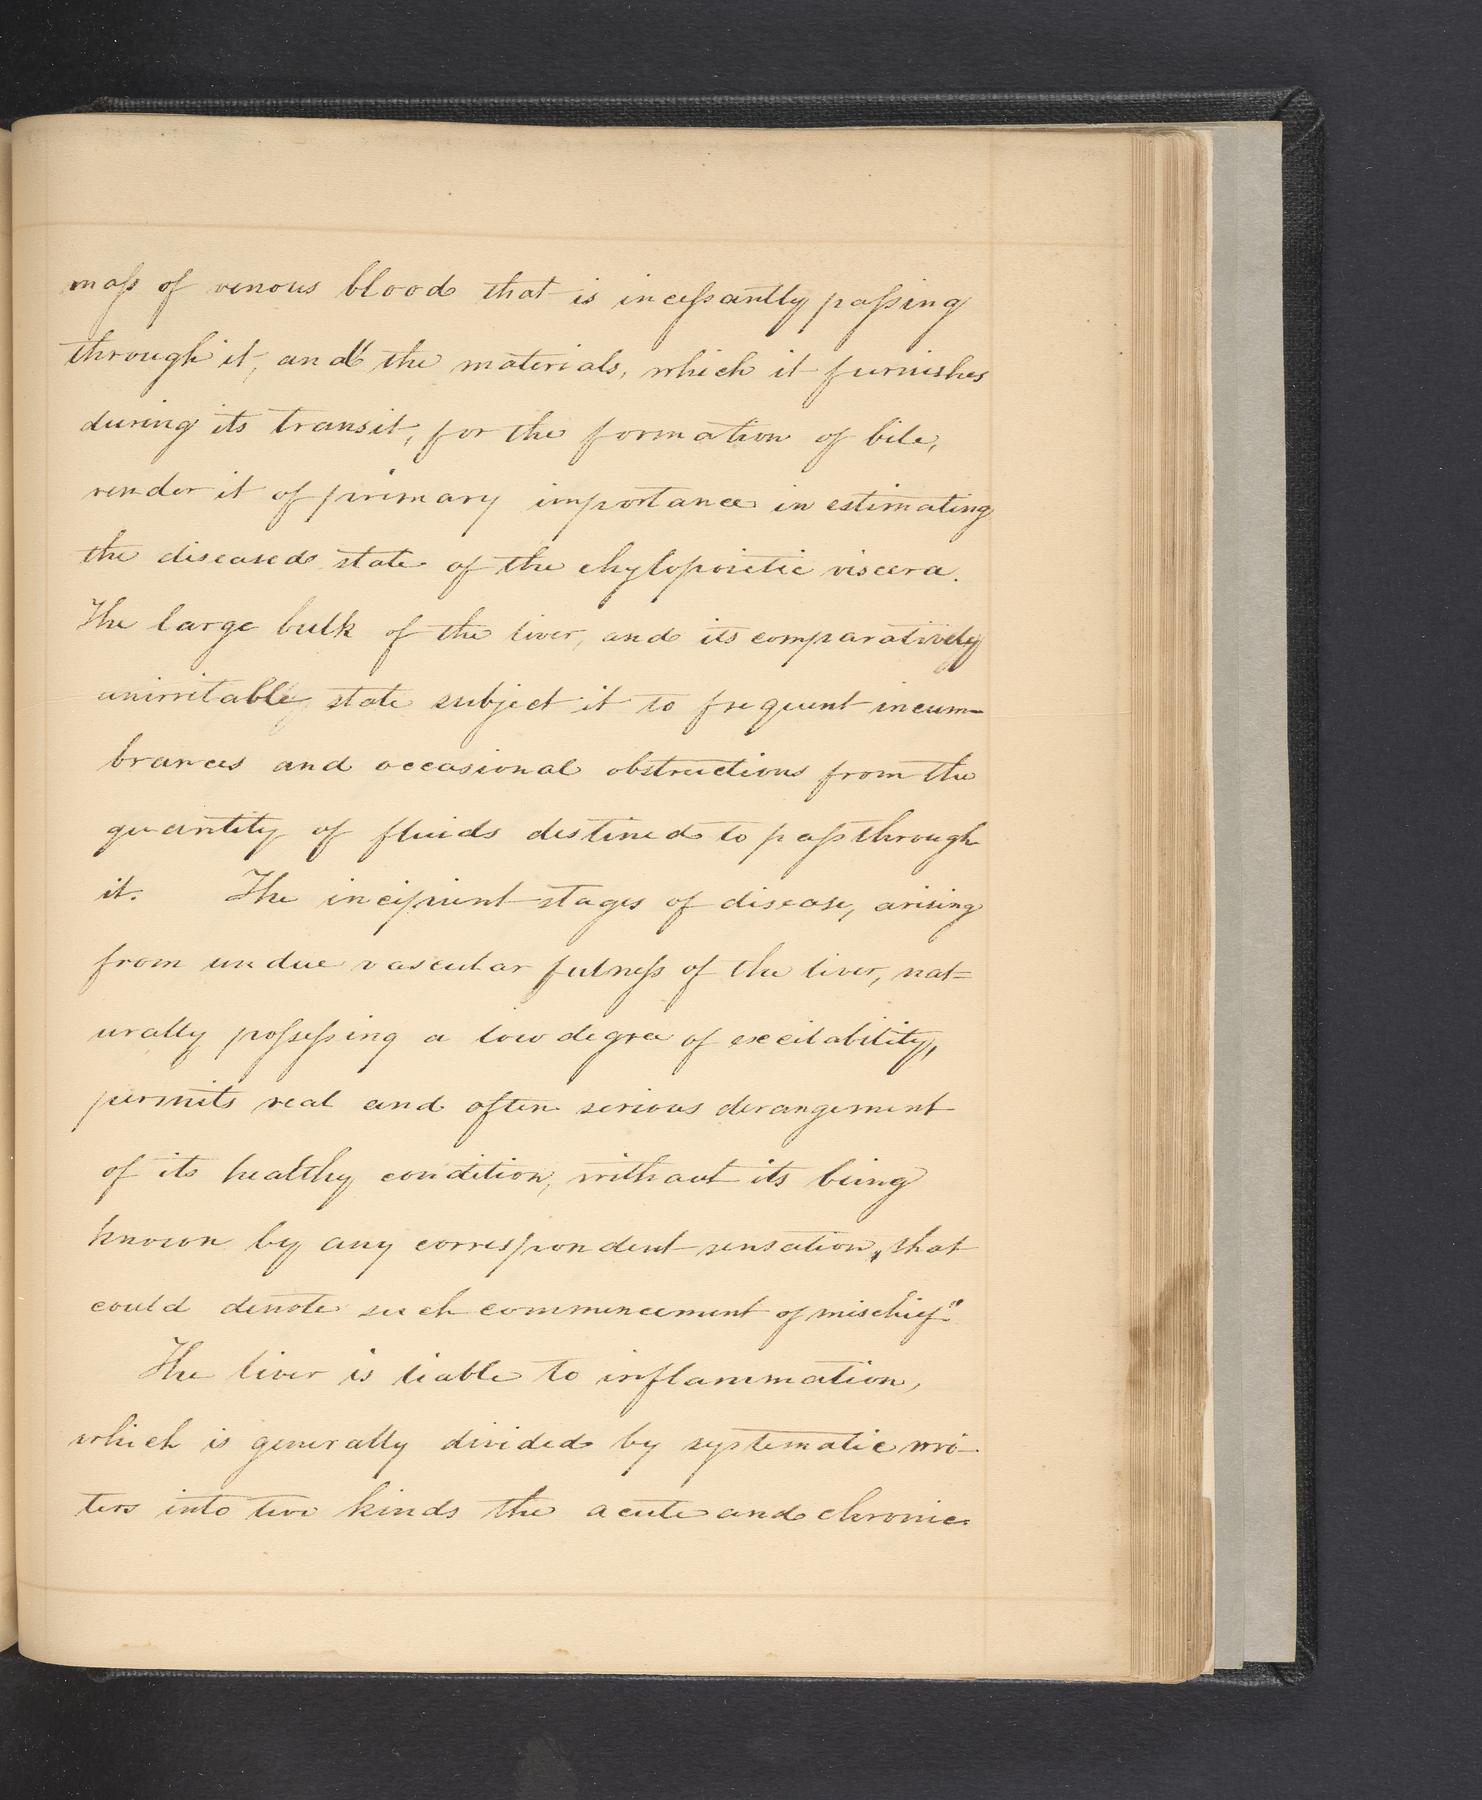 mass of venous blood that is incessantly passing
through it, and the materials, which it furnishes
during its transit, for the formation of bile,
render it of primary importance in estimating
the diseased state of the chylopoietic viscera.
The large bulk of the liver, and its comparatively
unirritable state subject it to frequent incum-
brances and occasional obstructions from the
quantity of fluids destined to pass through
it. The incipient stages of disease, arising
from undue vascular fulness of the liver, nat=
urally possessing a low degree of excitability,
permits real and often serious derangement
of its healthy condition, without its being
known by any correspondent sensation, that
could denote such commencement of mischief."
The liver is liable to inflammation,
which is generally divided by systematic wri-
ters into two kinds the acute and chronic.